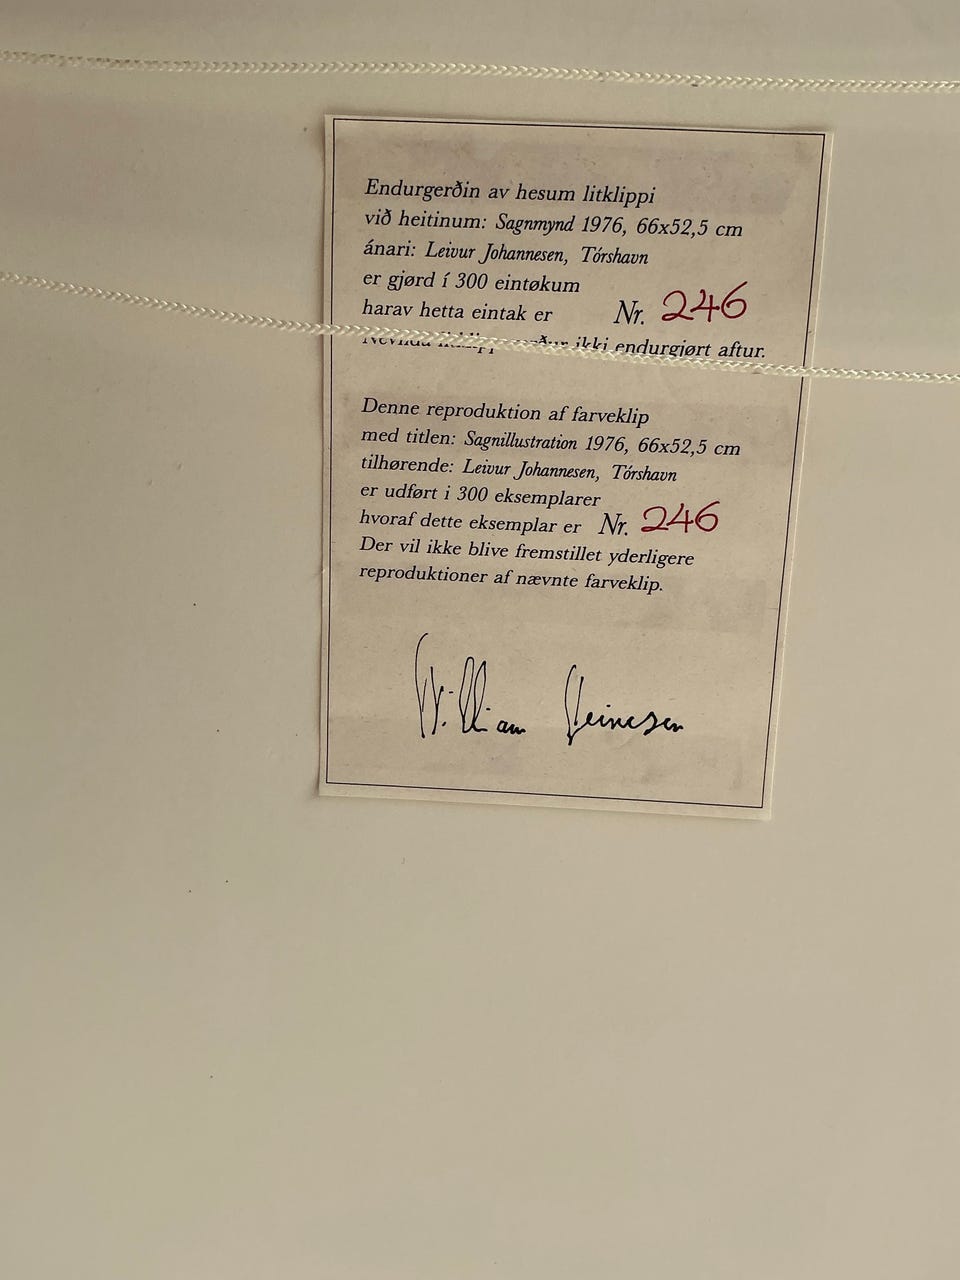 Endurgerðin av hesum litklippi
við heitinum: Sagnmynd 1976, 66x52,5 cm
ánari: Leivur Johannesen, Tórshavn
er gjørd í 300 eintøkum
harav hetta eintak er Nr. 246
ikki endurgjørt aftur.
Denne reproduktion af farveklip
med titlen: Sagnillustration 1976, 66x52,5 cm
tilhørende: Leivur Johannesen, Tórshavn
er udført i 300 eksemplarer
hvoraf dette eksemplar er Nr. 246
Der vil ikke blive fremstillet yderligere
reproduktioner af nævnte farveklip.
William Heinesen